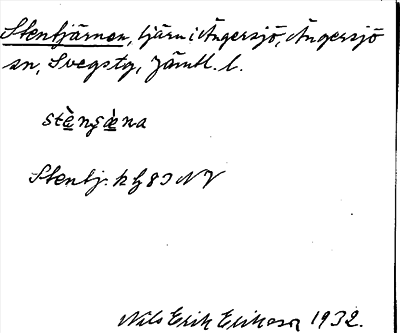 Stentjärnen, tjärn i Ängersjö, Ängersjö
sn, Svegs tg, Jämtl. l.
stèṉʂæ̀ṉa
Stentj. k bl 83 NV
Nils Erik Erikson 1932.